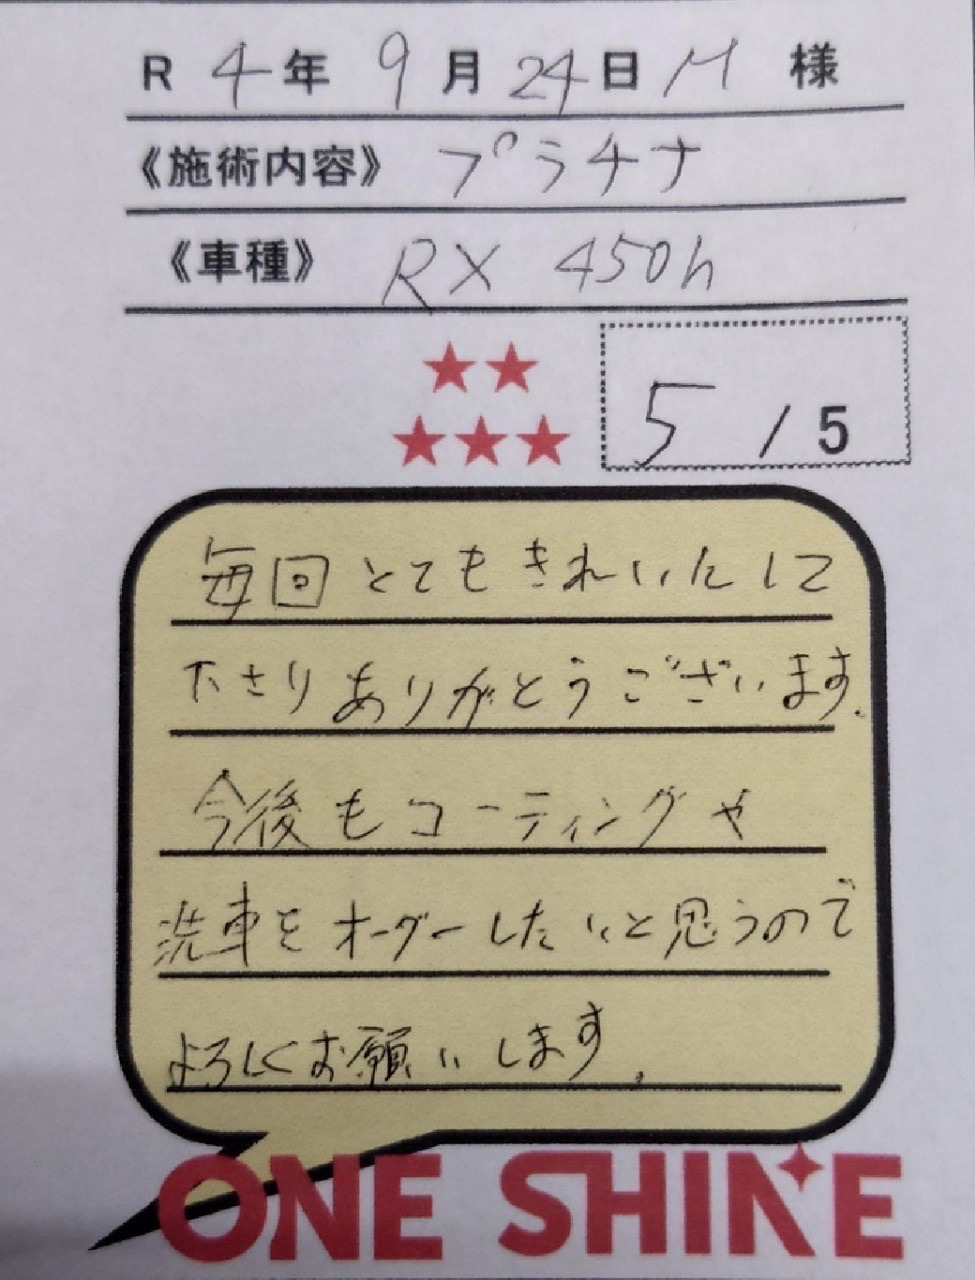 R 4年 9月 24日 M 様
《施術内容》 プラチナ
《車種》 RX 450h
5 / 5
毎回とてもきれいにして
下さりありがとうございます.
今後もコーティングや
洗車をオーダーしたいと思うので
よろしくお願いします.
ONE SHINE